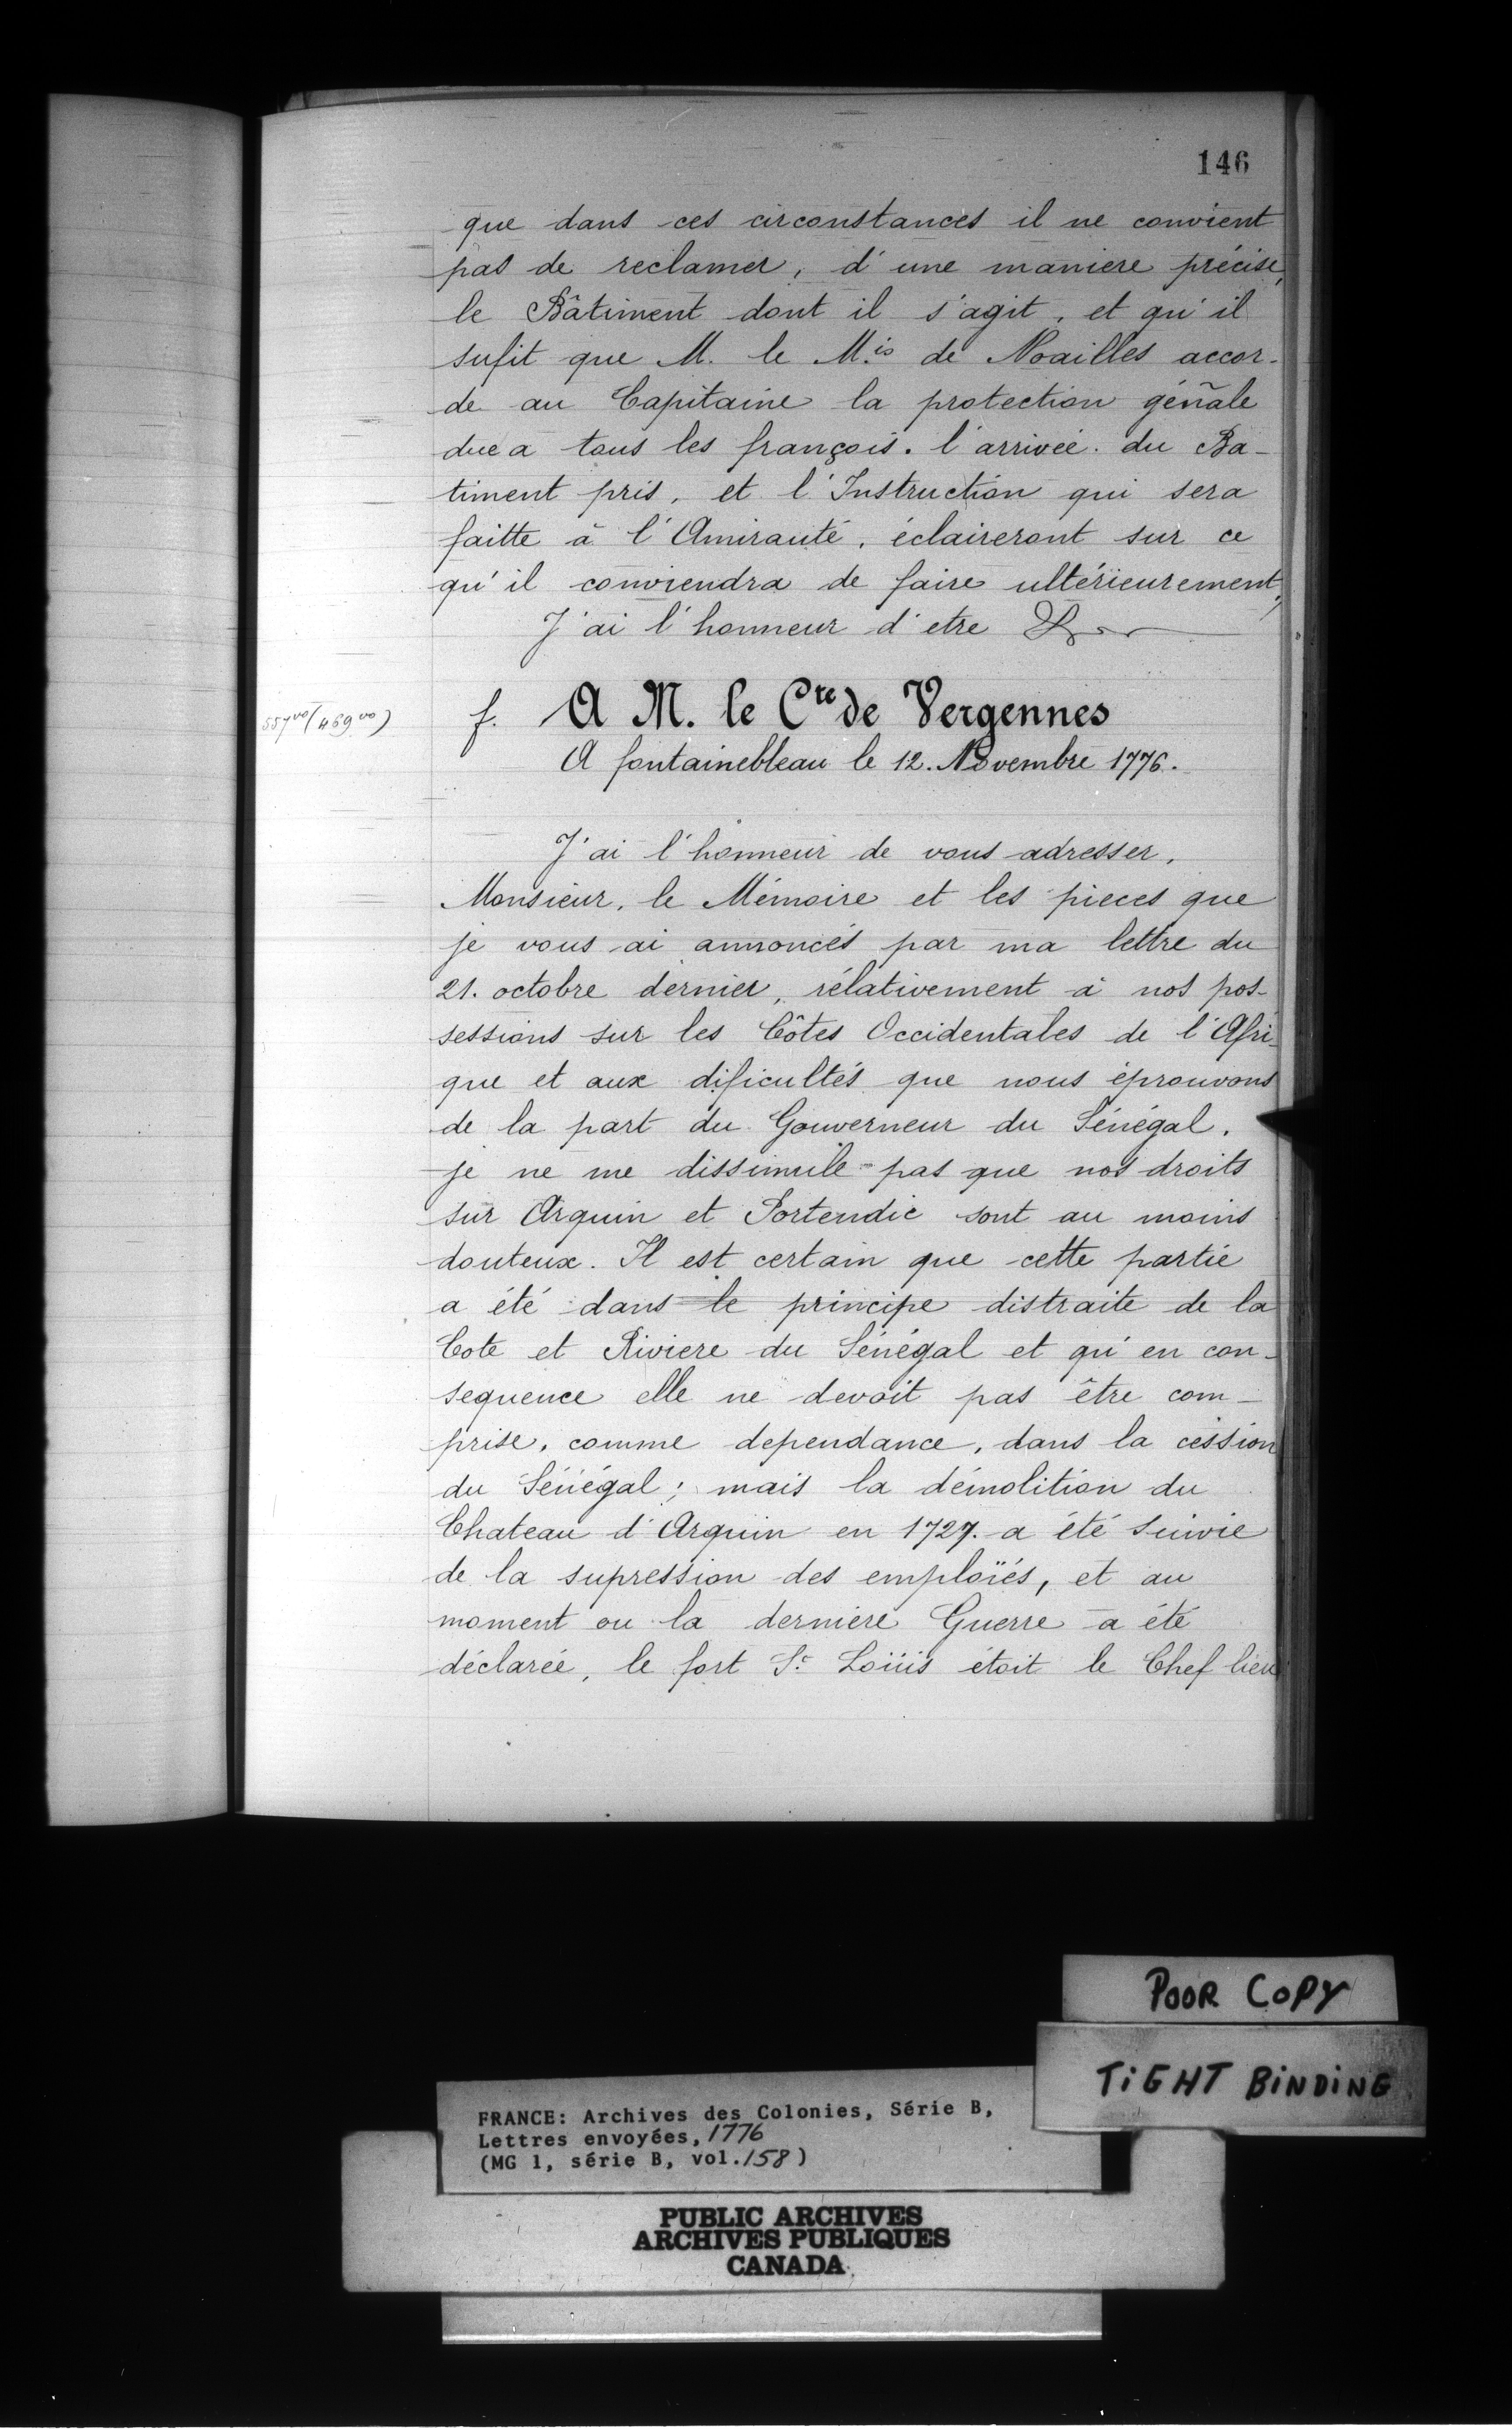 146
que dans ces circonstances il ne convient
pas de reclamer, d'une maniere précise,
le Bâtiment dont il s'agit, et qu'il
sufit que M. le M.is de Noailles accor-
de au Capitaine la protection géñale
due a tous les françois. l'arrivée du Ba-
timent pris, et l'Instruction qui sera
faitte à l'Amirauté, éclaireront sur ce
qu'il conviendra de faire ultérieurement,
J'ai l'honneur d'etre &
557vo (469 vo)
f. A M. le Cte de Vergennes
A fontainebleau le 12. Novembre 1776.
J'ai l'honneur de vous adresser,
Monsieur, le Mémoire et les pieces que
je vous ai annoncés par ma lettre du
21. octobre dernier, rélativement à nos pos-
sessions sur les Côtes Occidentales de l'Afri-
que et aux dificultés que nous éprouvons
de la part du Gouverneur du Sénégal.
je ne me dissimule pas que nos droits
sur Arguin et Portendic sont au moins
douteux. Il est certain que cette partie
a été dans le principe distraite de la
Cote et Riviere du Sénégal et qu'en con-
sequence elle ne devoit pas être com-
prise, comme dependance, dans la cession
du Sénégal; mais la démolition du
Chateau d'Arguin en 1727. a été suivie
de la supression des emploïés, et au
moment ou la derniere Guerre a été
déclarée, le fort St. Loüis étoit le Chef lieu
POOR COPY
TIGHT BINDING
FRANCE: Archives des Colonies, Série B,
Lettres envoyées, 1776
(MG 1, série B, vol. 158)
PUBLIC ARCHIVES
ARCHIVES PUBLIQUES
CANADA